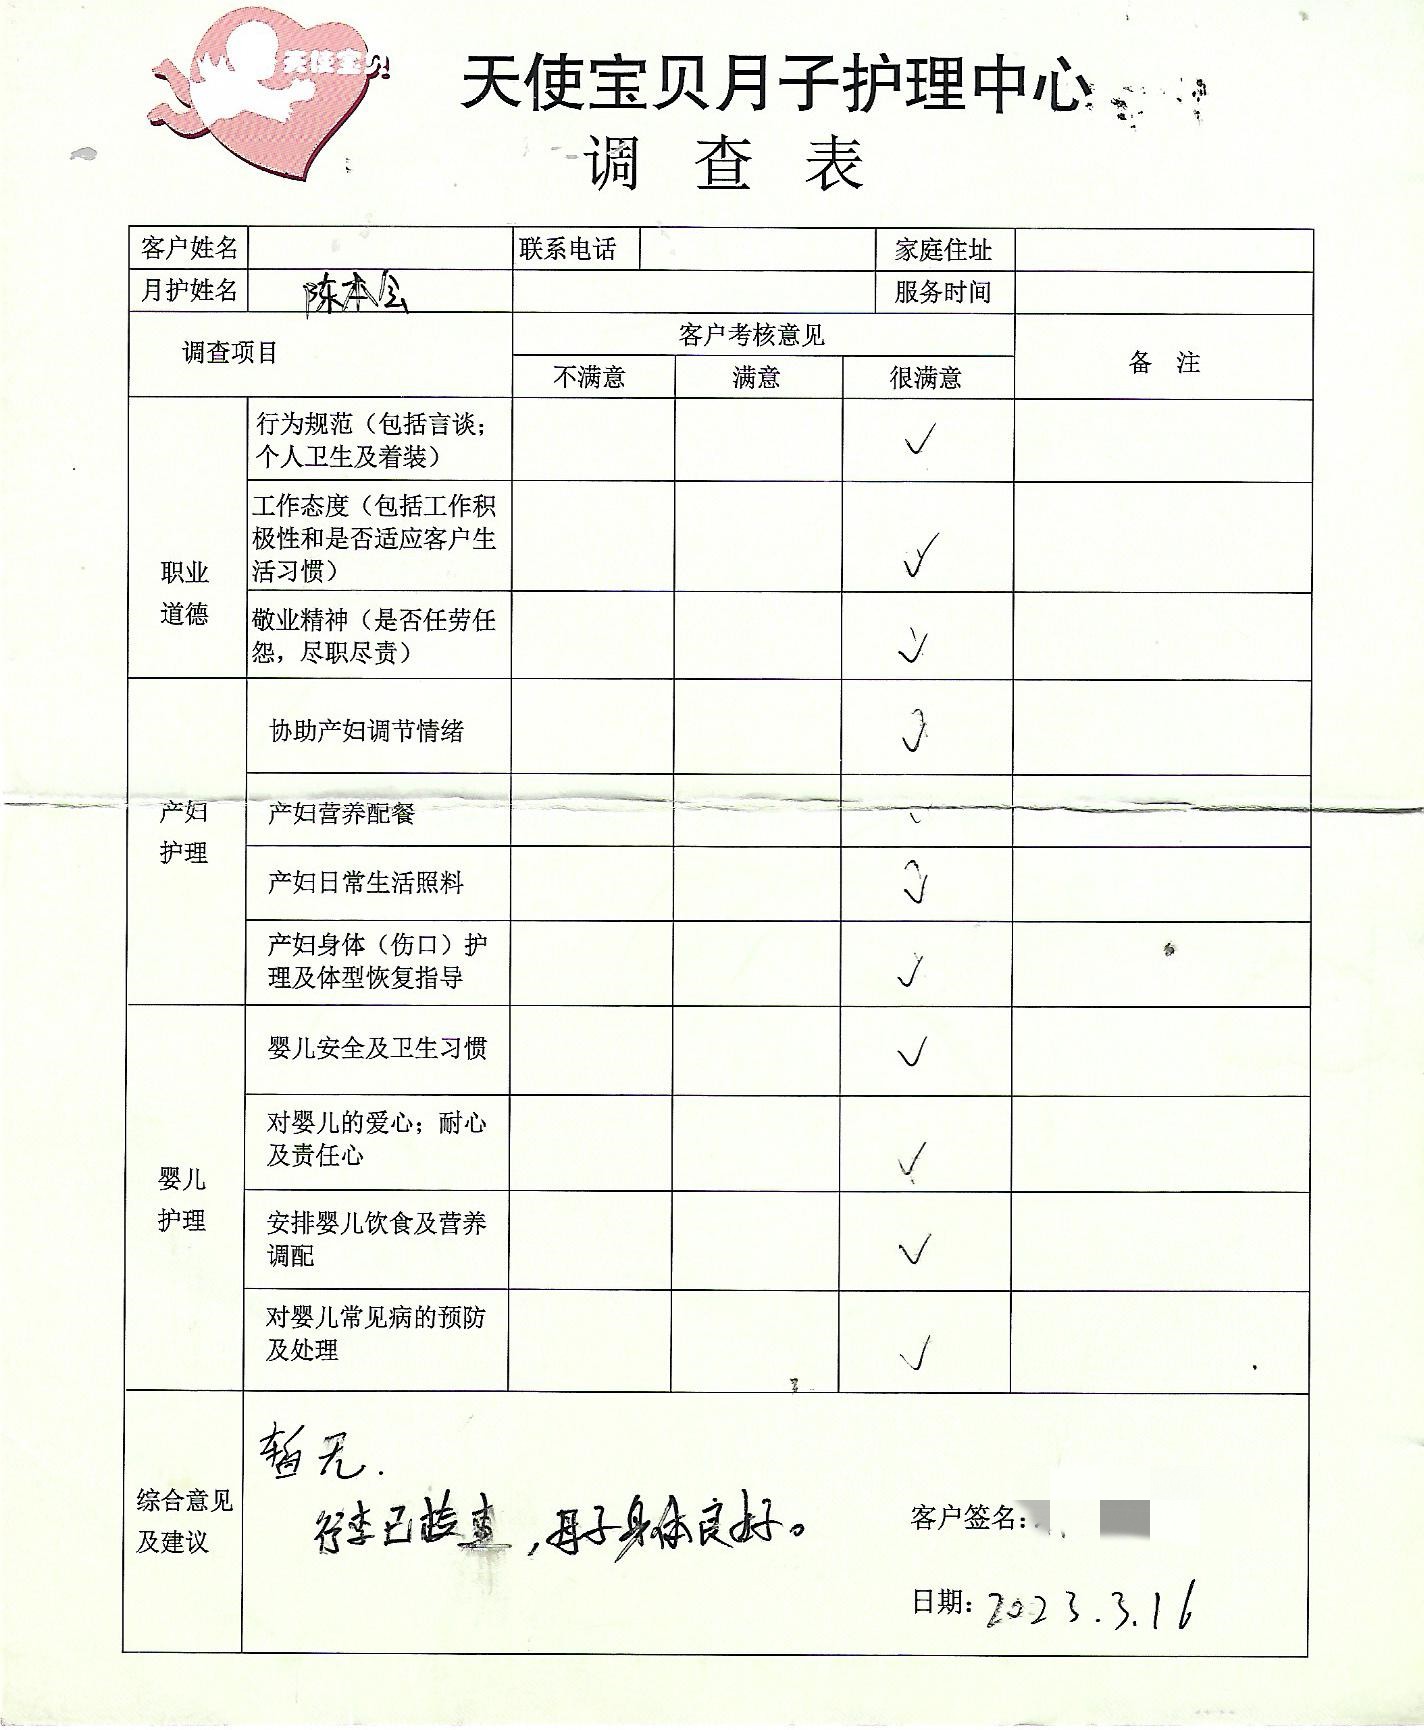 天使宝贝
天使宝贝月子护理中心
调 查 表
客户姓名 联系电话 家庭住址
月护姓名 陈本会 服务时间
调查项目 客户考核意见 备 注
不满意 满意 很满意
职业
道德
行为规范（包括言谈；
个人卫生及着装） ✓
工作态度（包括工作积
极性和是否适应客户生
活习惯） ✓
敬业精神（是否任劳任
怨，尽职尽责） ✓
产妇
护理
协助产妇调节情绪 ✓
产妇营养配餐 ✓
产妇日常生活照料 ✓
产妇身体（伤口）护
理及体型恢复指导 ✓
婴儿
护理
婴儿安全及卫生习惯 ✓
对婴儿的爱心；耐心
及责任心 ✓
安排婴儿饮食及营养
调配 ✓
对婴儿常见病的预防
及处理 ✓
综合意见
及建议
暂无.
行李已检查，母子身体良好。
客户签名：
日期：2023.3.16